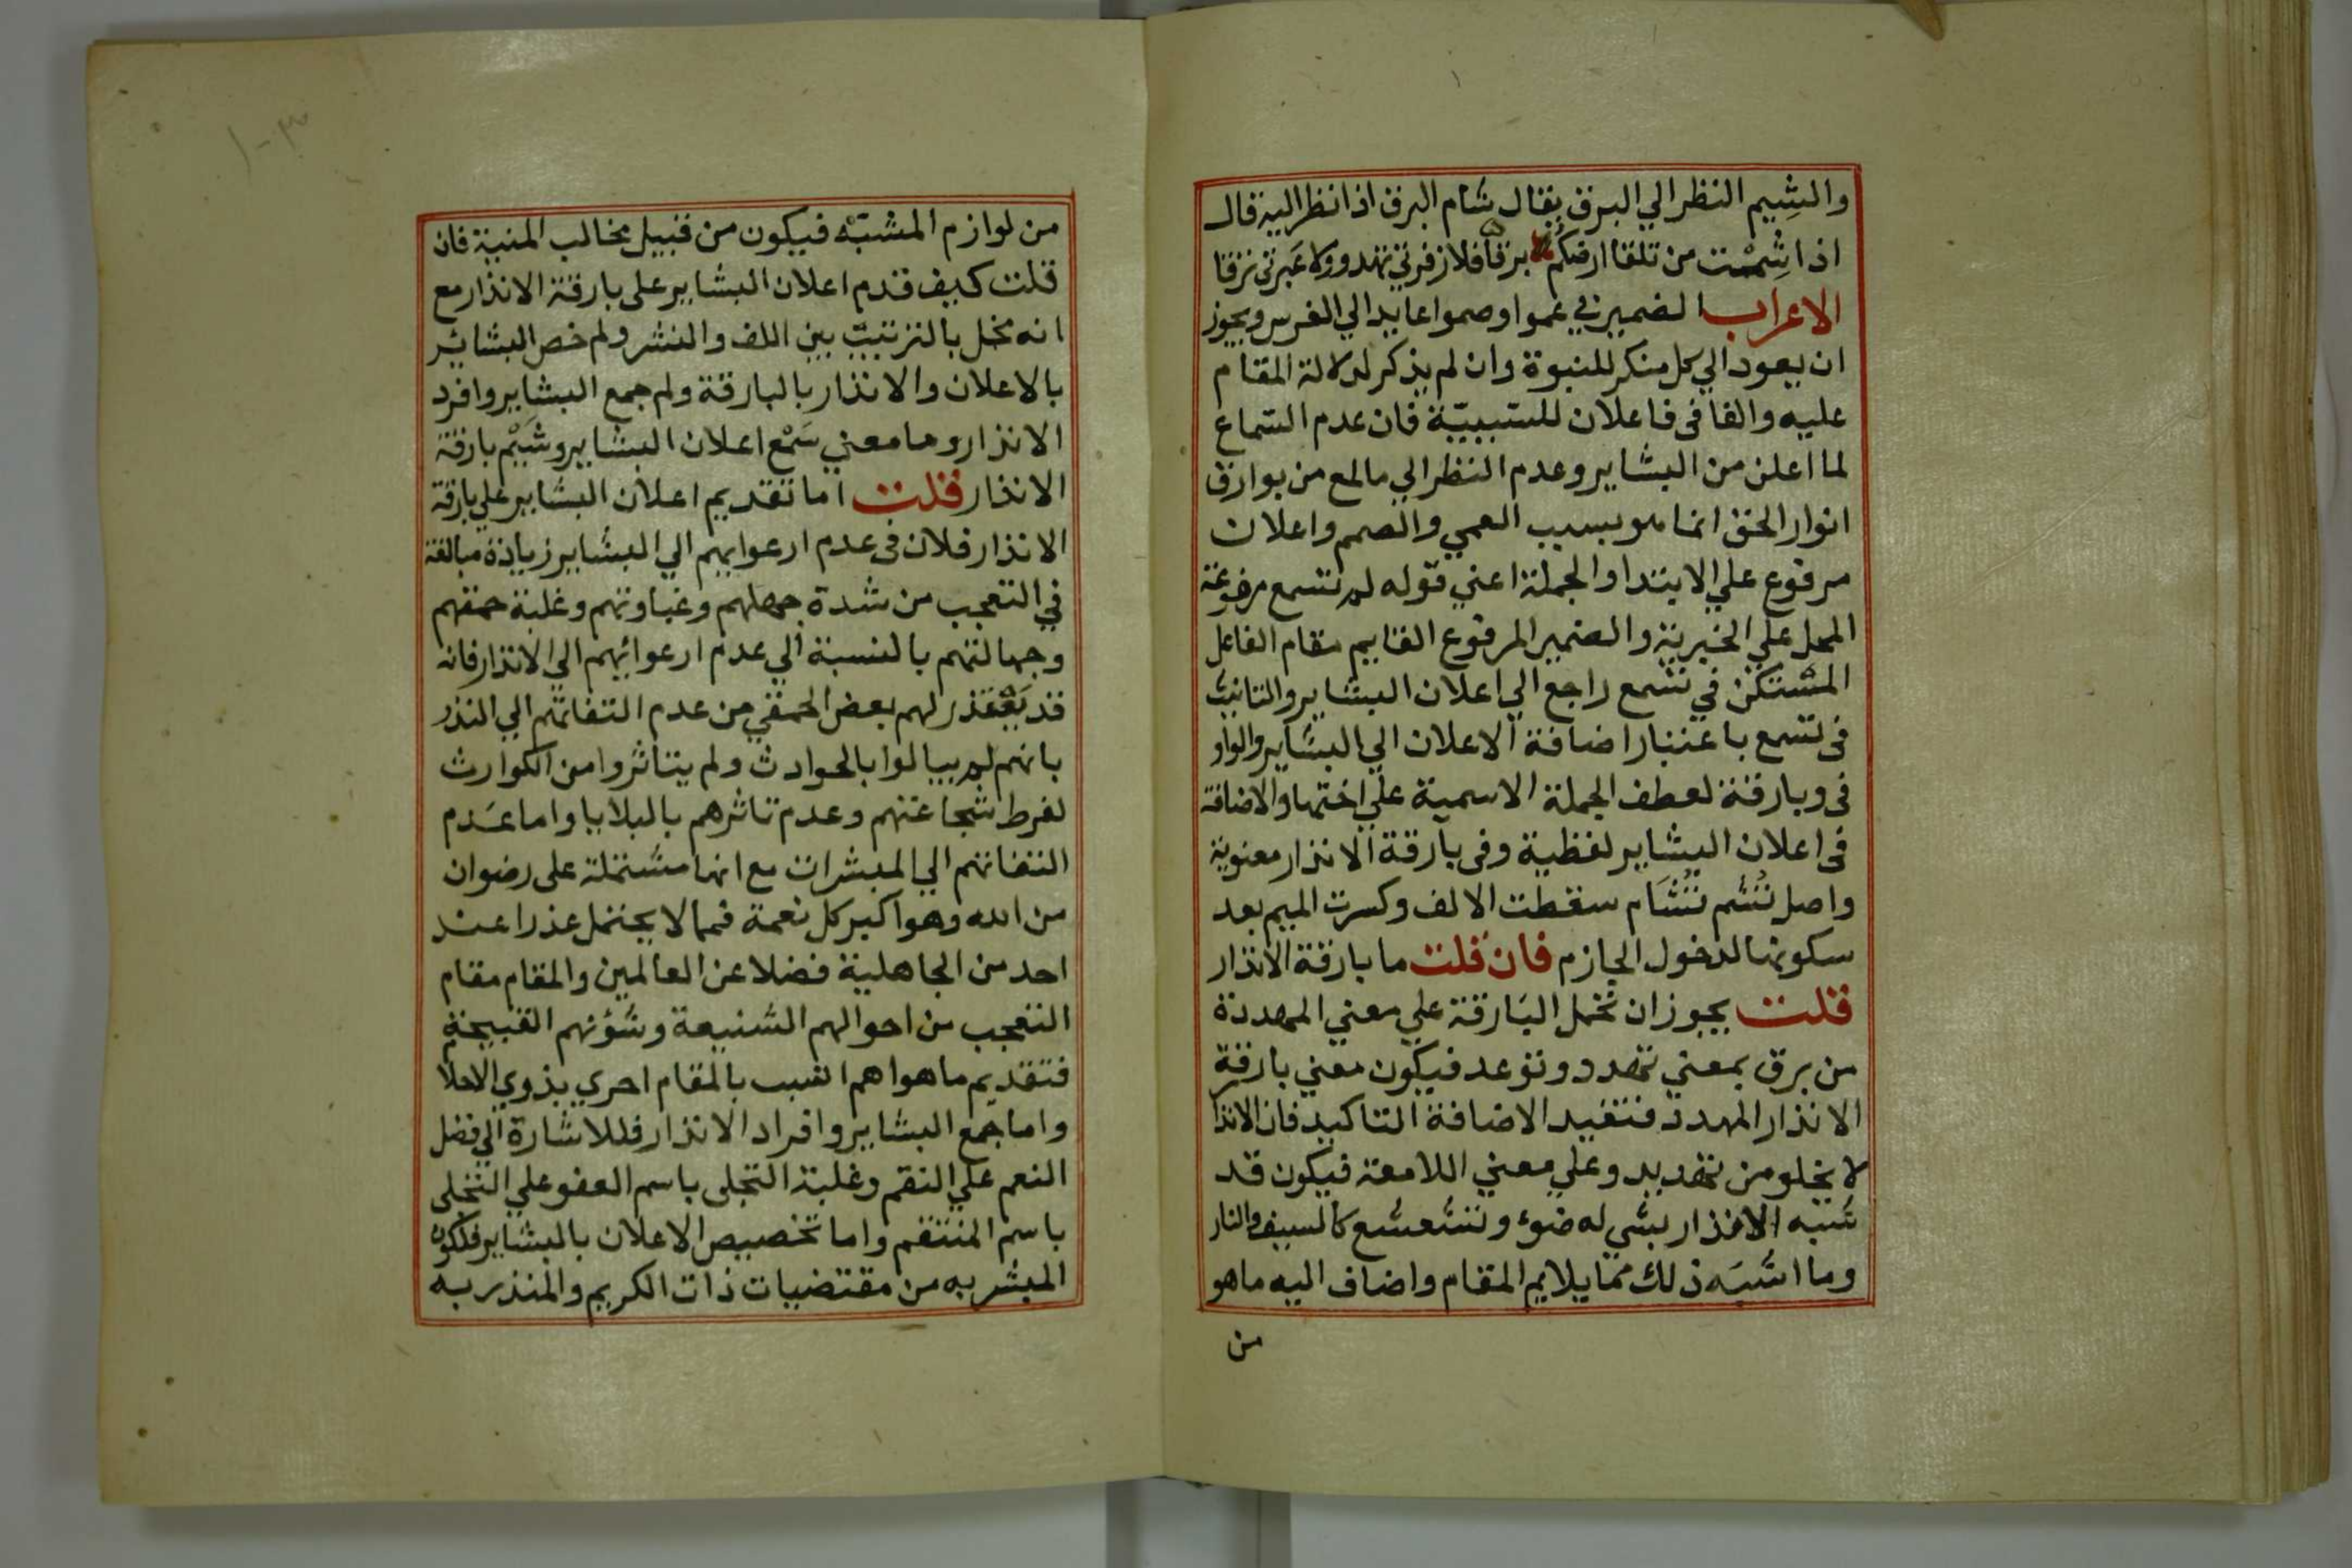 والشِيم النظر الي البرق يقال شام البرق اذا نظر اليه قال
اذا شِمْت من تلقا ارضكم برقا فلا زفرتي تهدو ولا عَبرتي ترقا
الاعراب الضمير في عموا وصموا عايد الي الفرس ويجوز
ان يعود الي كل منكر للنبوة وان لم يذكر لدلالة المقام
عليه والفا فى فاعلان للسّببيّة فان عدم السّماع
لما اعلن من البشاير وعدم النظر الي ما لمع من بوارق
انوار الحق انما هو بسبب العمي والصمم واعلان
مرفوع علي الابتدا والجملة اعني قوله لم تسمع مرفوعة
المحل علي الخبرية والضمير المرفوع القايم مقام الفاعل
المستكن في تسمع راجع الي اعلان البشاير والتانيث
فى تسمع باعتبار اضافة الاعلان الي البشاير والواو
فى وبارقة لعطف الجملة الاسمية علي اختها والاضافة
فى اعلان البشاير لفظية وفى بارقة الانذار معنوية
واصل تُشَم تُشَام سقطت الالف وكسرت الميم بعد
سكونها لدخول الجازم فان قلت ما بارقة الانذار
قلت يجوز ان تحمل البَارقة علي معني المهددة
من برق بمعني تهدد وتوعد فيكون معني بارقة
الانذار المهدد فتفيد الاضافة التاكيد فان الانذا
لا يخلو من تهديد وعلي معني اللامعة فيكون قد
شبّه الانذار بشي له ضوء وتشعشع كالسيف والنار
وما اشبَه ذلك ممّا يلايم المقام واضاف اليه ما هو
من
١٠٣
من لوازم المشبّه فيكون من قبيل مخالب المنية فان
قلت كيف قدم اعلان البشاير على بارقة الانذار مع
انه مخل بالترتيب بين اللف والنشر ولم خص البشائر
بالاعلان والانذار بالبارقة ولم جمع البشاير وافرد
الانذار وما معني سَمْع اعلان البشاير وشَيْم بارقة
الانذار قلت اما تقديم اعلان البشاير علي بارقة
الانذار فلان فى عدم ارعوايهم الي البشاير زيادة مبالغة
في التعجب من شدة جهلهم وغباوتهم وغلبة حمقهم
وجهالتهم بالنسبة الي عدم ارعوائهم الي الانذار فانه
قد يَعْتذر لهم بعض الحمقي من عدم التفاتهم الي النذر
بانهم لم يبالوا بالحوادث ولم يتاثروا من الكوارث
لفرط شجاعتهم وعدم تاثرهم بالبلايا واما عَدم
التفاتهم الي المبشرات مع انها مشتملة على رضوان
من الله وهو اكبر كل نعمة فمما لا يحتمل عذرا عند
احد من الجاهلية فضلا عن العالمين والمقام مقام
التعجب من احوالهم الشنيعة وشؤنهم القبيحة
فتقديم ما هو اهم انسب بالمقام احري بذوي الاحلا
واما جمع البشاير وافراد الانذار فللاشارة الي فضل
النعم علي النقم وغلبة التجلى باسم العفو علي التجلى
باسم المنتقم واما تخصيص الاعلان بالبشاير فلكون
المبشر به من مقتضيات ذات الكريم والمنذر به